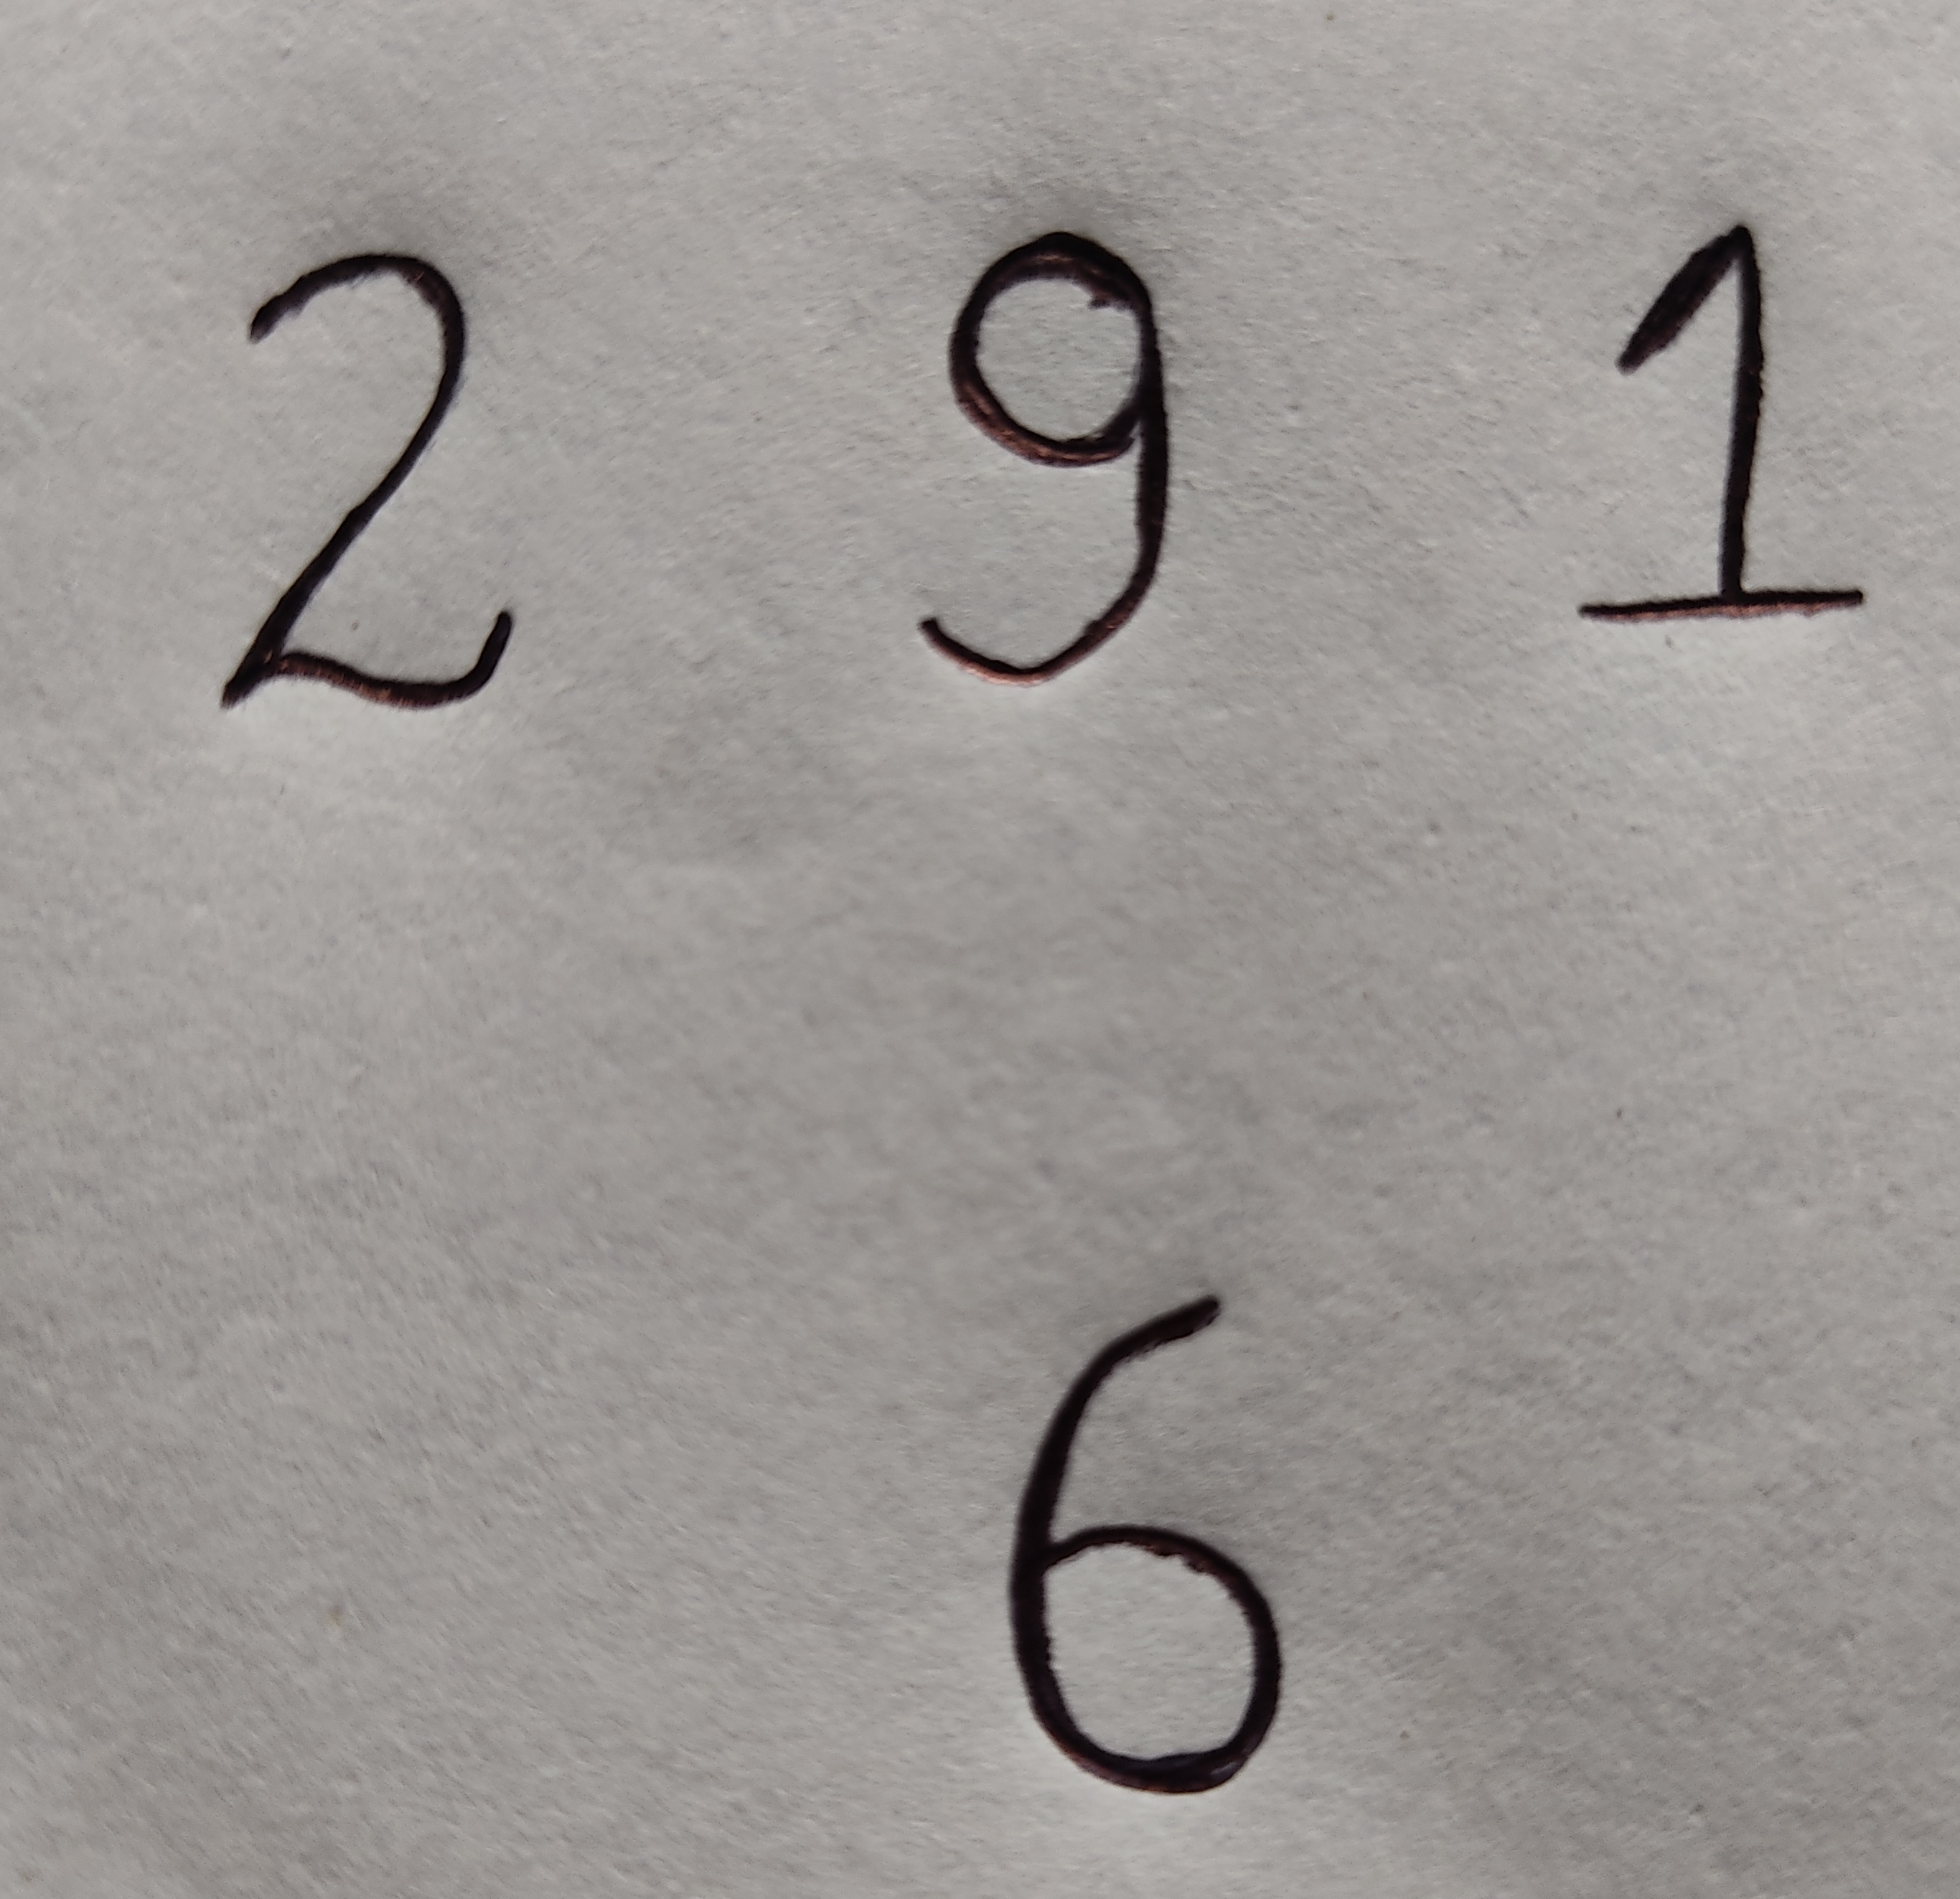 2 9 1
6